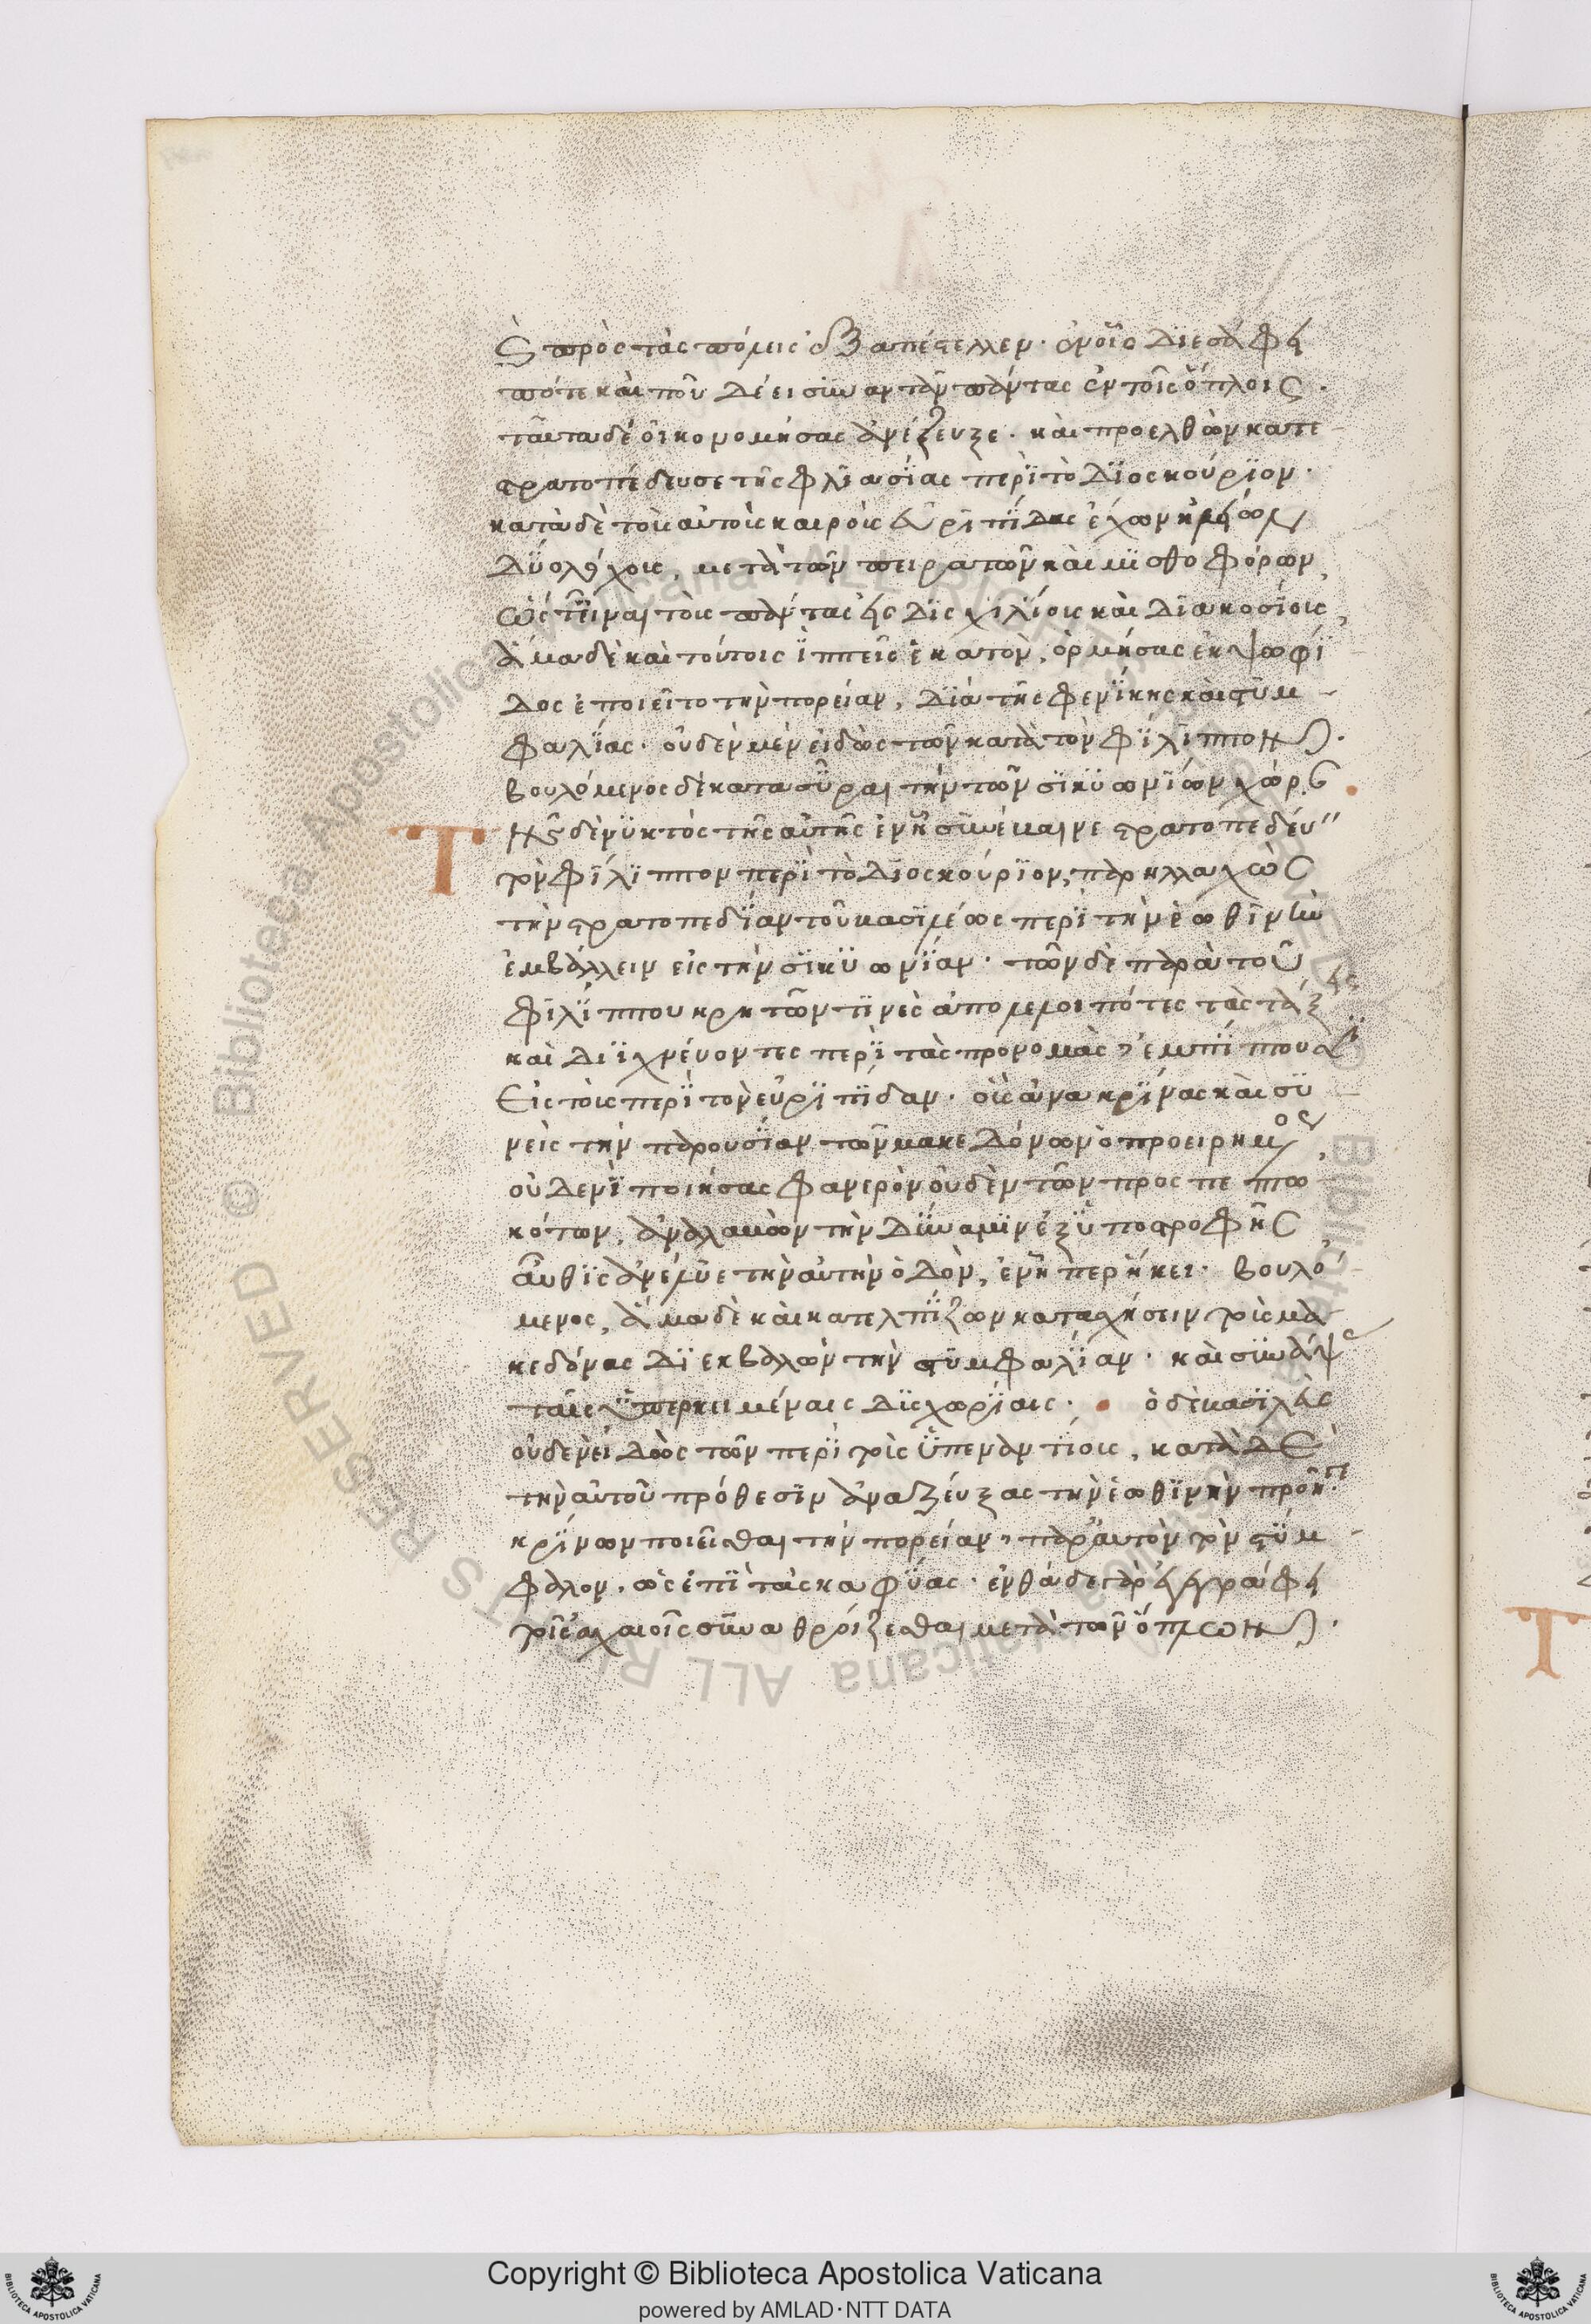 καὶ πρὸς τὰς πόλεις ἐξαπέστελλεν· ἐν οἷς διεσάφει
πότε καὶ ποῦ δέει συναντᾶν πάντας ἐν τοῖς ὅπλοις.
ταῦτα δὲ οἰκονομήσας ἀνέζευξε· καὶ προελθὼν κατε
στρατοπέδευσε τῆς φλιασίας περὶ τὸ Διοσκούριον.
κατὰ δὲ τοὺς αὐτοὺς καιροὺς εὐριπίδας ἔχων ἠλείων
δύο λόχους, μετὰ τῶν πειρατῶν καὶ μισθοφόρων,
ὥστ' εἶναι τοὺς πάντας εἰς δισχιλίους καὶ διακοσίους,
ἅμα δὲ καὶ τούτοις ἱππεῖς ἑκατὸν, ὁρμήσας ἐκ ψωφί
δος ἐποιεῖτο τὴν πορείαν, διὰ τῆς φενίκης καὶ στυμ
φαλίας· οὐδὲν μὲν εἰδὼς τῶν κατὰ τὸν φίλιππον.
βουλόμενος δὲ κατασῦραι τὴν τῶν σικυωνίων χώρ
Τῆς δὲ νυκτὸς τῆς αὐτῆς ἐν ᾗ συνέβαινε στρατοπεδεύ
τὸν φίλιππον περὶ τὸ Διοσκούριον, παρηλλαχὼς
τὴν στρατοπεδίαν τοῦ βασιλέως περὶ τὴν ἑωθινὴν
ἐμβάλλειν εἰς τὴν σικυωνίαν· τῶν δὲ παρὰ τοῦ
φιλίππου κρητῶν τινὲς ἀπολελοιπότες τὰς τάξεις
καὶ διιχνεύοντες περὶ τὰς προνομὰς, ἐμπίπτουσιν
εἰς τοὺς περὶ τὸν εὐριπίδαν· οὓς ἀνακρίνας καὶ συ
νεὶς τὴν παρουσίαν τῶν μακεδόνων ὁ προειρημένος,
οὐδενὶ ποιήσας φανερὸν οὐδὲν τῶν προσπεπτω
κότων, ἀναλαβὼν τὴν δύναμιν ἐξ ὑποστροφῆς
αὖθις ἀνέλυε τὴν αὐτὴν ὁδὸν, ἐν ᾗ περ ἥκει· βουλό
μενος, ἅμα δὲ καὶ κατελπίζων καταχήσειν τοὺς μα
κεδόνας διεκβαλὼν τὴν στυμφαλίαν· καὶ συνάψας
ταῖς ὑπερκειμέναις δισχωρίαις· ὁ δὲ βασιλεὺς
οὐδὲν εἰδὼς τῶν περὶ τοὺς ὑπεναντίους, κατὰ δὲ
τὴν αὐτοῦ πρόθεσιν ἀναζεύξας τὴν ἑωθινὴν προῆγε
κρίνων ποιεῖσθαι τὴν πορείαν, παρ' αὐτὸν τὸν στύμ
φαλον, ὡς ἐπὶ τὰς καφύας· ἐνθάδε παρήγραφει
τοῖς ἀχαιοῖς συναθροίζεσθαι μετὰ τῶν ὅπλων.
Copyright © Biblioteca Apostolica Vaticana
powered by AMLAD·NTT DATA